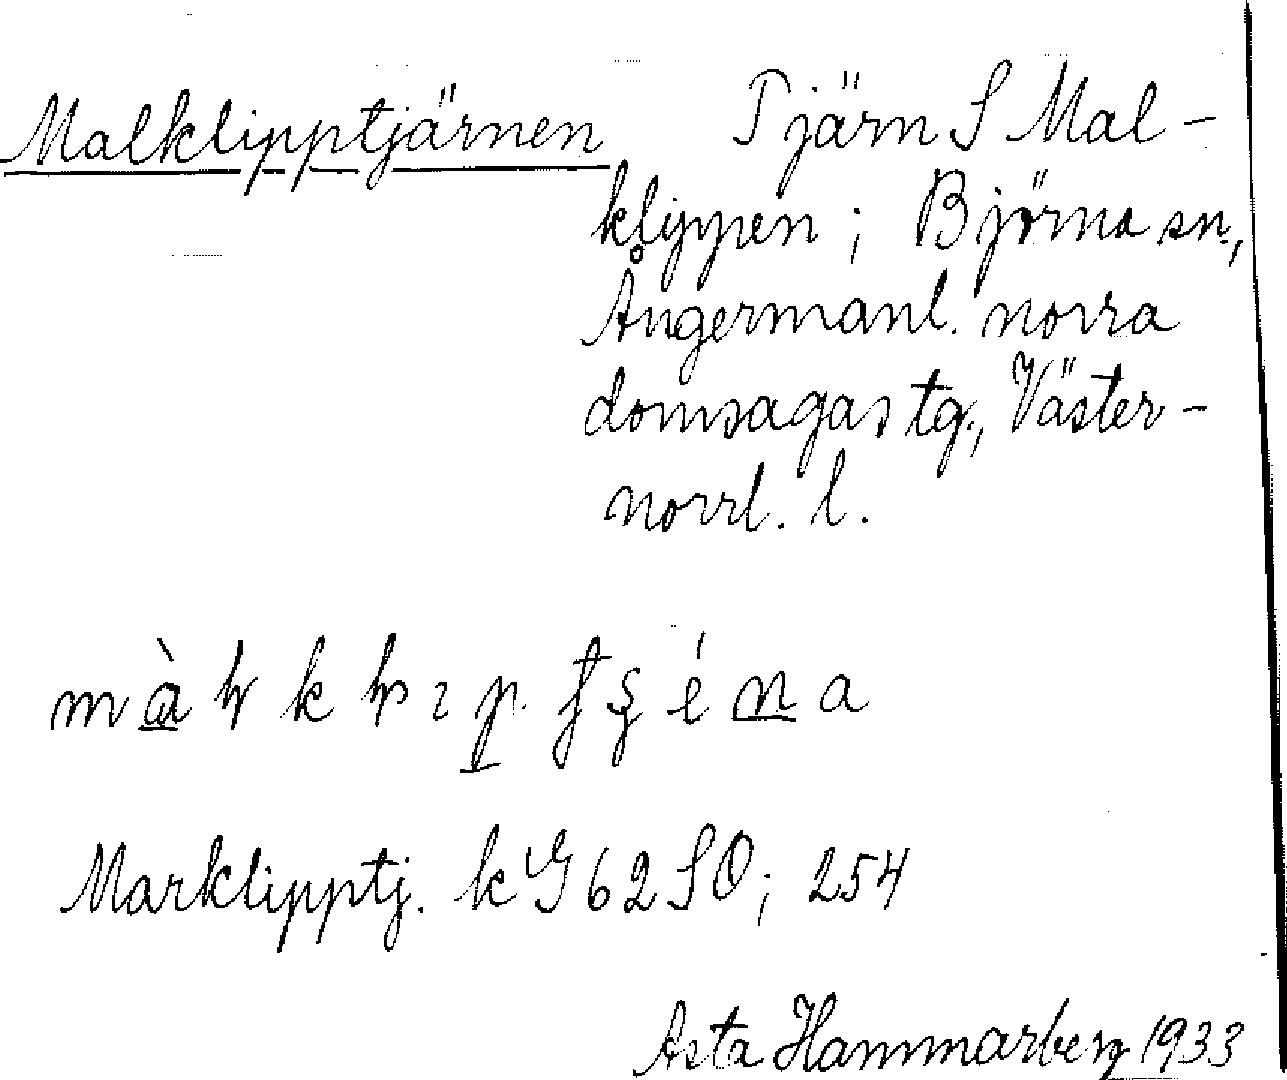 Malklipptjärnen Tjärn S Mal-
klippen; Björna sn.,
Ångermanl. norra
domsagas tg., Väster-
norrl. l.
Marklipptj. k G 62 SO; 254
Asta Hammarberg 1933